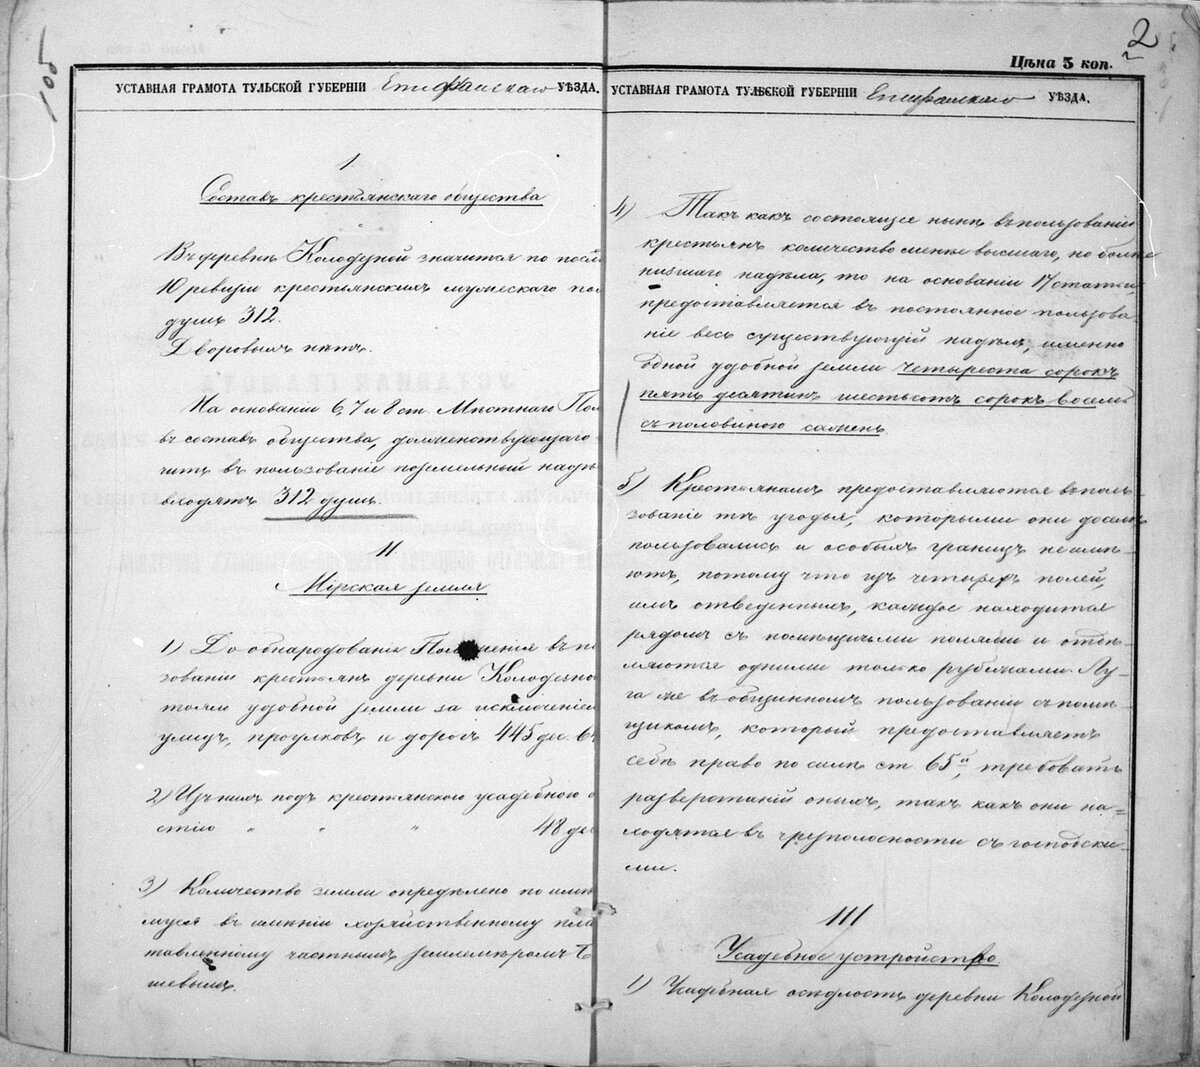 105
УСТАВНАЯ ГРАМОТА ТУЛЬСКОЙ ГУБЕРНІИ Епифанскаго УѢЗДА.
1
Составъ крестьянскаго общества
Въ деревнѣ Колодезной значится по посл
10 ревизіи крестьянскихъ мужескаго пол
душъ 312.
Дворовыхъ нѣтъ.
На основаніи 6, 7 и 8 ст. Мѣстнаго Пол
въ составъ общества, долженствующаго
чить въ пользованіе поземельный надѣ
входятъ 312 душъ.
II
Мірская земля
1) До обнародованія Положенія въ по
зованіи крестьянъ деревни Колодезно
тояло удобной земли за исключеніе
улицъ, проулковъ и дорогъ 445 дес. 64
2) Изъ нихъ подъ крестьянскою усадебною о
стію " " " 48 де
3) Количество земли опредѣлено по имѣ
муся въ имѣніи хозяйственному пла
тавленному частнымъ землемѣромъ
шевымъ.
2
Цѣна 5 коп.
УСТАВНАЯ ГРАМОТА ТУЛЬСКОЙ ГУБЕРНІИ Епифанскаго УѢЗДА.
4) Такъ какъ состоящее нынѣ въ пользованіи
крестьянъ количество менѣе высшаго, но болѣе
низшаго надѣла, то на основаніи 17 статьи,
предоставляется въ постоянное пользова-
ніе весь существующій надѣлъ, именно
одной удобной земли четыреста сорокъ
пять десятинъ шестьсотъ сорокъ восемь
съ половиною сажень.
5) Крестьянамъ предоставляются въ поль
зованіе тѣ угодья, которыми они доселѣ
пользовались и особыхъ границъ не имѣ-
ютъ, потому что изъ четырехъ полей,
имъ отведенныхъ, каждое находится
рядомъ съ помѣщичьими полями и отдѣ-
ляются одними только рубежами. Лу-
га же въ общинномъ пользованіи съ помѣ-
щикомъ, который предоставляетъ
себѣ право по силѣ ст. 65й, требовать
разверстаній оныхъ, такъ какъ они на=
ходятся въ чрезполосности съ господски-
ми.
III
Усадебное устройство
1) Усадебная осѣдлость деревни Колодезной